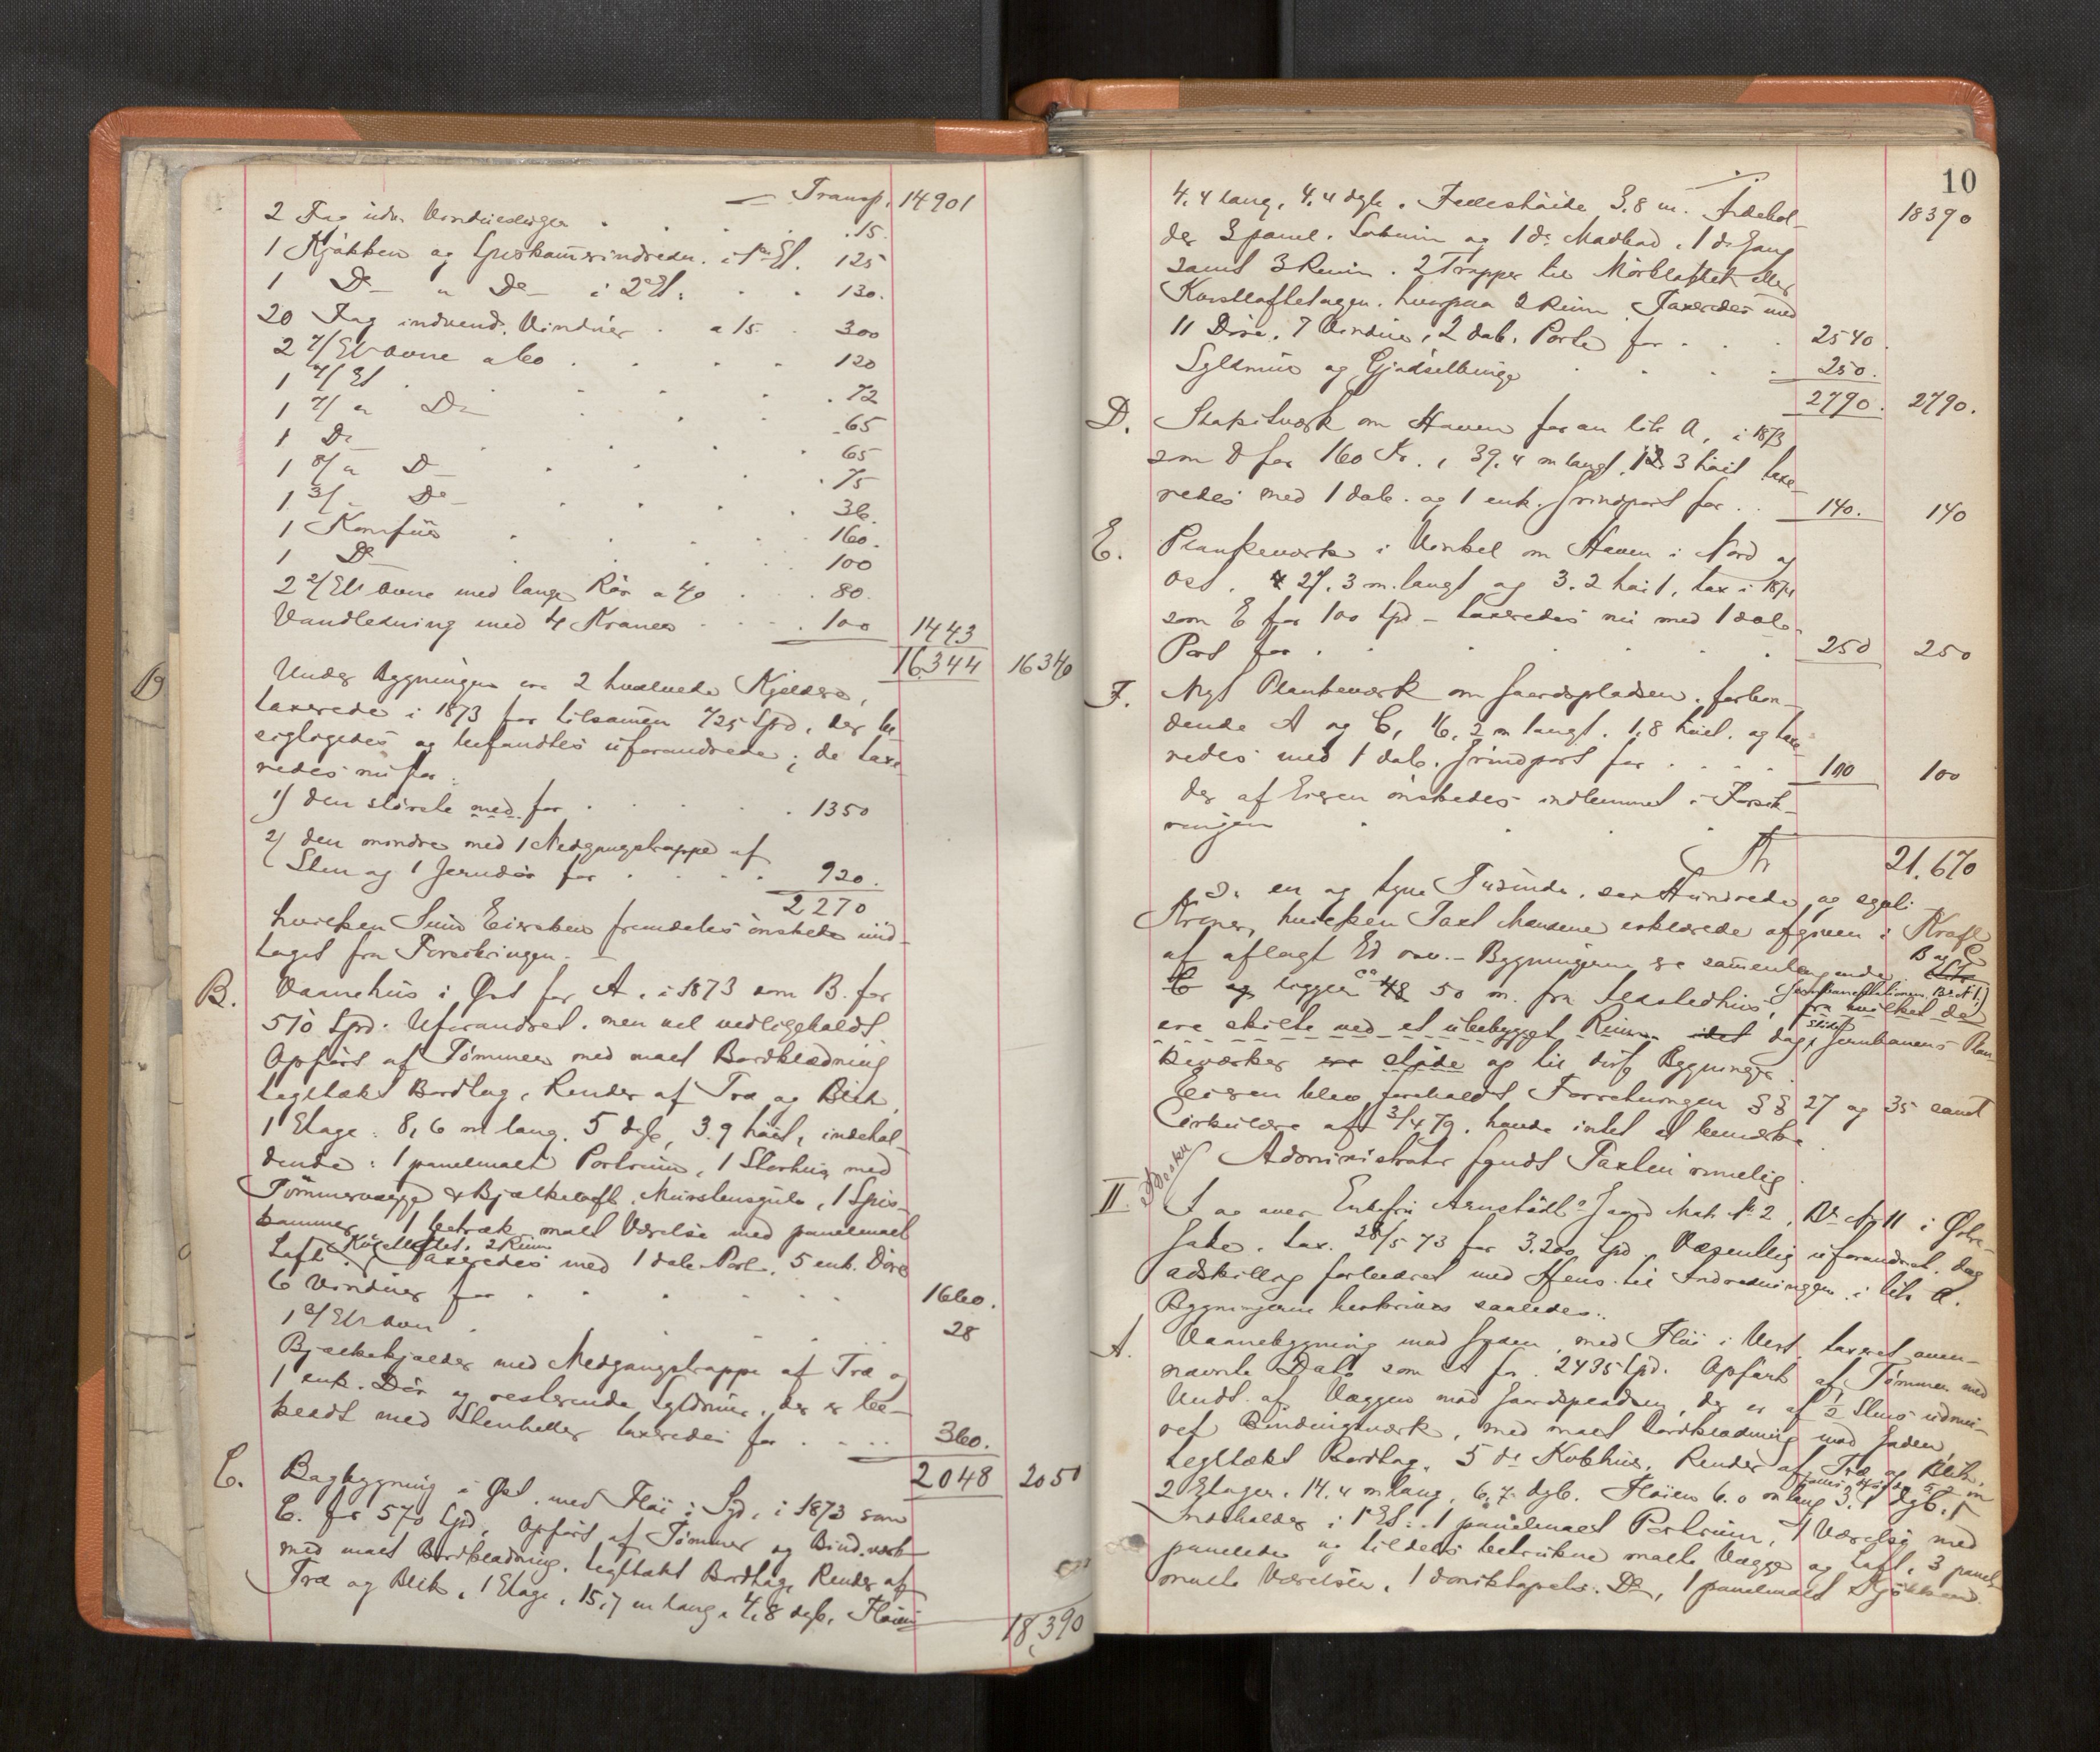 Transp. 14901
2 Fag udv. Vinduesluger . . . . 15.
1 Kjøkken og Spiskammerindredn. i 1ste Et. 125
1 Do " Do i 2den Et. . . 130.
20 Fag indvend. Vinduer . a 15 . 300
2 2/Et Ovne a 60 . . . . 120
1 4/Et . . . . . 72
1 7/ " Do . . . 65
1 Do . . . . . 65
1 8/ " D . . . 75
1 3/ . Do . . . . 36.
1 Komfur . . . . 160.
1 Do . . . . . 100
2 2/Et Ovne med lange Rør a 40 . . . 80.
Vandledning med 4 Kraner . . . . 100 1443
16344 16340
Under Bygningen ere 2 hvælvede Kjeldere,
taxerede i 1873 for tilsammen 725 Spd, der be-
sigtigedes og befandtes uforandrede; de taxe-
redes nu for:
1) den største med for . . . . . 1350
2) den mindre med 1 Nedgangstrappe af
Sten og 1 Jerndør for . . . . 920.
2270
hvilken Sum Eieren fremdeles ønskede und-
taget fra Forsikringen. —
B. Vaanehus i Øst for A, i 1873 som B. for
510 Spd. Uforandret, men vel vedligeholdt
Opført af Tømmer med malt Bordklædning
tegltækt Bordtag, Render af Træ og Blik,
1 Etage: 8,6 m lang, 5 dyb, 3.9 høit, indehol-
dende: 1 panelmalt Portrum, 1 Storhus med
Tømmervægge & Bjælkeloft, Murstensgulv, 1 Spis-
kammer, 1 betræk-malt Værelse med panelmalt
Loft. Kvistloftet, 2 Rum Taxeredes med 1 dob. Port, 5 enk. Døre
6 Vinduer for . . . . . . 1660.
1 2/Et Ovn . . . . 28
Bjælkekjælder med Nedgangstrappe af Træ og
1 enk. Dør og resterende Syldmur, der er be-
klædt med Stenheller taxeredes for . . . . 360.
2048 2050
C. Bagbygning i Øst, med Fløi i Syd, i 1873 som
C. for 570 Spd, Opført af Tømmer og Bind.verk
med malt Bordklædning, tegltækt Bordtag, Render af
Træ og Blik, 1 Etage, 15,7 m lang, 4,8 dyb, Fløien
18,390
10
4,4 lang, 4,4 dyb. Fælleshøide 3.8 m. Indehol-
18390
der 3 panel. Lokum og 1 do Madbod, 1 do Gang
samt 3 Rum. 2 Trapper til Mørkloftet eller
Kvistloftetagen, hvorpaa 2 Rum. Taxeredes med
11 Døre, 7 Vinduer, 2 dob. Porte for . . . 2540.
Syldmur og Gjødselbinge . . . . 250.
2790. 2790.
D. Stakitværk om Haven foran litr A, i 1873
som D for 160 Kr., 39,4 m langt, 1,3 høit taxe-
redes med 1 dob. og 1 enk. Grindport for . . 140. 140
E. Plankeværk i Vinkel om Haven i Nord og
Øst, 27,3 m. langt og 3.2 høit, tax i 1873
som E for 100 Spd — taxeredes nu med 1 dob.
Port for . . . . . . 250 250
F. Nyt Plankeværk om Gaardspladsen, forbin-
dende A og C, 16,2 m langt, 1,8 høit, og taxe-
redes med 1 dob. Grindport for . . . . 100 100
der af Eieren ønskedes indlemmet i Forsik-
ringen . . . .
Kr 21.670
D. en og tyve Tusinde, sex Hundrede og sytti
Kroner, hvilken Taxt Mændene erklærede afgiven i Kraft
af aflagt Ed osv. — Bygningerne ere sammenhængende. B og C
C og ligger ca 48 50 m. fra Ildstedhus, (Jernbanestationen Br. No 1.) fra hvilket de
ere skilte ved et ubebygget Rum idet dog Jernbanens Plan-
keværker ere støde op til disse Bygninger.
Eieren blev foreholdt Forretningen §§ 27 og 35 samt
Cirkulære af 3/4 79, havde intet at bemærke.
Administrator fandt Taxten rimelig.
II. I og over Enkefru Arnstadts Gaard Mat. No 2, Br. No 11 i Østre-
Gade, tax. 28/5 73 for 3.200 Spd. Væsentlig uforandret, dog
adskillig forbedret med Hens. til Indredningen i litr A.
Bygningerne beskrives saaledes:
A. Vaanebygning mod Gaden, med Fløi i Vest, taxeret oven-
nævnte Dato som A for 2435 Spd. Opført af Tømmer med
Undt. af Væggen mod Gaardspladsen, der er af 1/2 Stens udmu-
ret Bindingsværk, med malt Bordklædning mod Gaden,
tegltækt Bordtag, 5 do Kobhus, Render af Træ og Blik,
2 Etager, 14,4 m lang, 6,7 dyb. Fløien 6.0 m lang 3,1 dyb,
Indeholder i 1ste Et: 1 panelmalt Portrum, 1 Værelse med
panelede og tildels betrukne malte Vægge og Loft, 3 panel-
malte Værelser, 1 do, 1 panelmalt Kjøkken